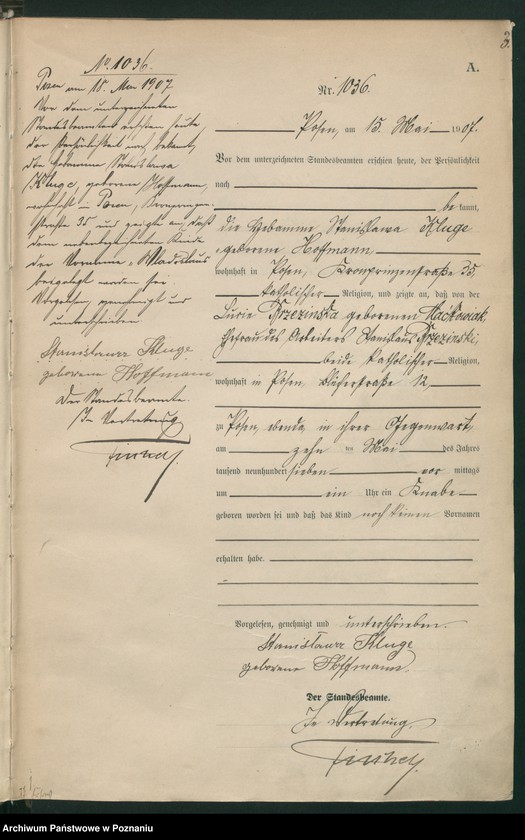 3.
A.
Nr. 1036.
Posen, am 15. Mai 1907.
Vor dem unterzeichneten Standesbeamten erschien heute, der Persönlichkeit
nach
be kannt,
die Hebamme Stanislawa Kluge
geborene Hoffmann
wohnhaft in Posen, Kronprinzenstraße 35,
katholischer Religion, und zeigte an, daß von der
Lucie Brzezinska geborenen Maćkowiak,
Ehefrau des Arbeiters Stanislaus Brzezinski,
beide katholischer Religion,
wohnhaft in Posen, 12,
zu Posen, ebenda, in ihrer Gegenwart,
am zehn ten Mai des Jahres
tausend neunhundert sieben vor mittags
um ein Uhr ein Knabe
geboren worden sei und daß das Kind noch keinen Vornamen
erhalten habe.
Vorgelesen, genehmigt und unterschrieben.
Stanisława Kluge
geborene Hoffmann.
Der Standesbeamte.
In Vertretung.
No. 1036.
Posen am 18. Mai 1907
Vor dem unterzeichneten
Standesbeamten erschien heute
der Persönlichkeit nach bekannt,
die Hebamme Stanislawa
Kluge, geborene Hoffmann,
wohnhaft in Posen, Kronprinzen-
straße 35 und zeigte an, daß
dem nebenbezeichneten Kinde
der Vorname
beigelegt worden sei.
Vorgelesen, genehmigt und
unterschrieben
Stanisława Kluge
geborene Hoffmann
Der Standesbeamte.
In Vertretung
Archiwum Państwowe w Poznaniu